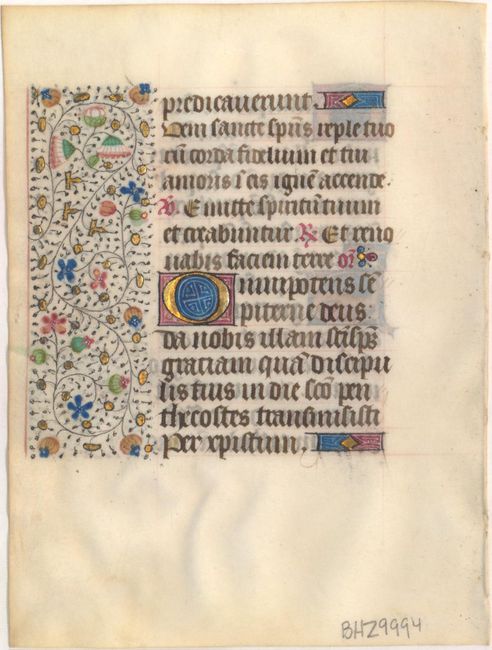 predicaverunt.
Veni sancte sp̄us reple tuo
rū corda fidelium et tui
amoris ī eis ignē accende.
V. Emitte spiritū tuum
et creabuntur R Et reno
uabis faciem terre or̄
Omnipotens se
piterne deus
da nobis illam sc̄i sp̄s
graciam quā discipu
lis tuis in die sc̄o pen
thecostes transmisisti
Per xpistum.
BHZ9994